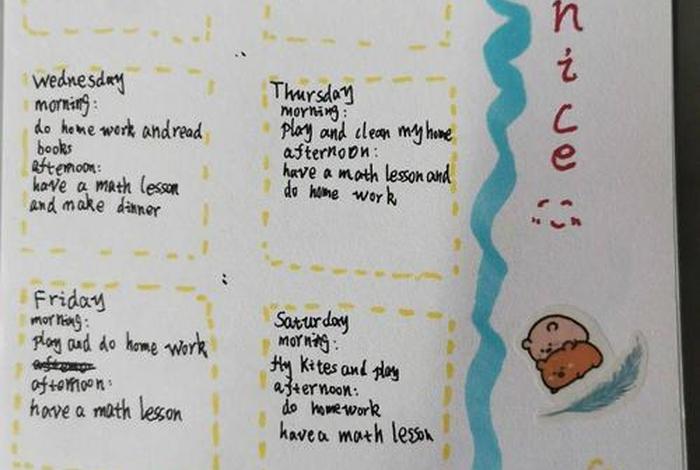 Wednesday
morning:
do home work and read
books
afternoon:
have a math lesson
and make dinner
Thursday
morning:
play and clean my home
afternoon:
have a math lesson and
do home work
Friday
morning:
play and do home work
afternoon:
have a math lesson
Saturday
morning:
fly kites and play
afternoon:
do homework
have a math lesson
n
i
c
e